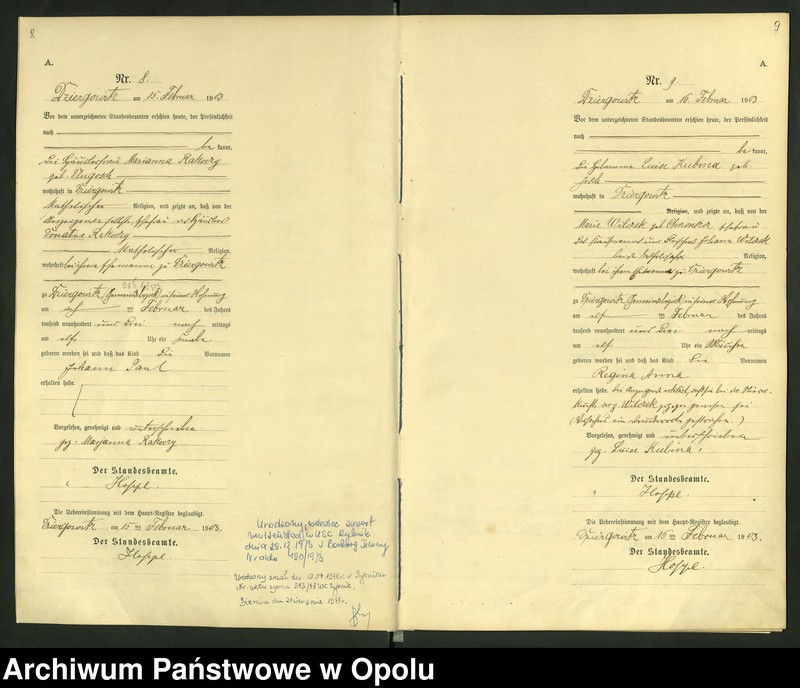 8
A.
Nr. 8.
Dziergowitz am 15. Februar 1903
Vor dem unterzeichneten Standesbeamten erschien heute, der Persönlichkeit
nach
be kannt,
die Häuslerfrau Marianna Rakoczy
geb.
wohnhaft in Dziergowitz
katholischer Religion, und zeigte an, daß von der
Donatus Rakoczy
katholischer Religion,
wohnhaft bei ihrem Ehemanne zu Dziergowitz
zu Dziergowitz in seiner Wohnung
am Februar des Jahres
tausend neunhundert und drei nach mittags
um elf Uhr ein Knabe
geboren worden sei und daß das Kind die Vornamen
Johann Paul
erhalten habe.
Vorgelesen, genehmigt und unterschrieben
gez. Marianna Rakoczy
Der Standesbeamte.
Hoppe.
Die Uebereinstimmung mit dem Haupt-Register beglaubigt.
Dziergowitz am 15 ten Februar 1903.
Der Standesbeamte.
Hoppe.
Urodzony, wdowiec zawarł
małżeństwo w USC Rybnik
dnia 28.12.1973 z Barbarą
Nr aktu 480/1973
Urodzony zmarł dn
Nr aktu zgonu
dn sierpnia
9
A.
Nr. 9
Dziergowitz am 16. Februar 1903
Vor dem unterzeichneten Standesbeamten erschien heute, der Persönlichkeit
nach
be kannt,
die Hebamme Luise Kubina geb.
wohnhaft in Dziergowitz
Religion, und zeigte an, daß von der
Marie Wilczek geb. Ehefrau
des Kaufmanns und Johann Wilczek
beide katholischer Religion,
wohnhaft bei ihrem Ehemanne zu Dziergowitz
zu Dziergowitz in seiner Wohnung
am elf ten Februar des Jahres
tausend neunhundert und drei nach mittags
um elf Uhr ein Mädchen
geboren worden sei und daß das Kind die Vornamen
Regina Anna
erhalten habe. die Anzeigende erklärt, daß sie bei der Nieder-
kunft der Wilczek zugegen gewesen sei
Vorgelesen, genehmigt und unterschrieben
gez. Luise Kubina.
Der Standesbeamte.
Hoppe.
Die Uebereinstimmung mit dem Haupt-Register beglaubigt.
Dziergowitz am Februar 1903.
Der Standesbeamte.
Hoppe.
Archiwum Państwowe w Opolu